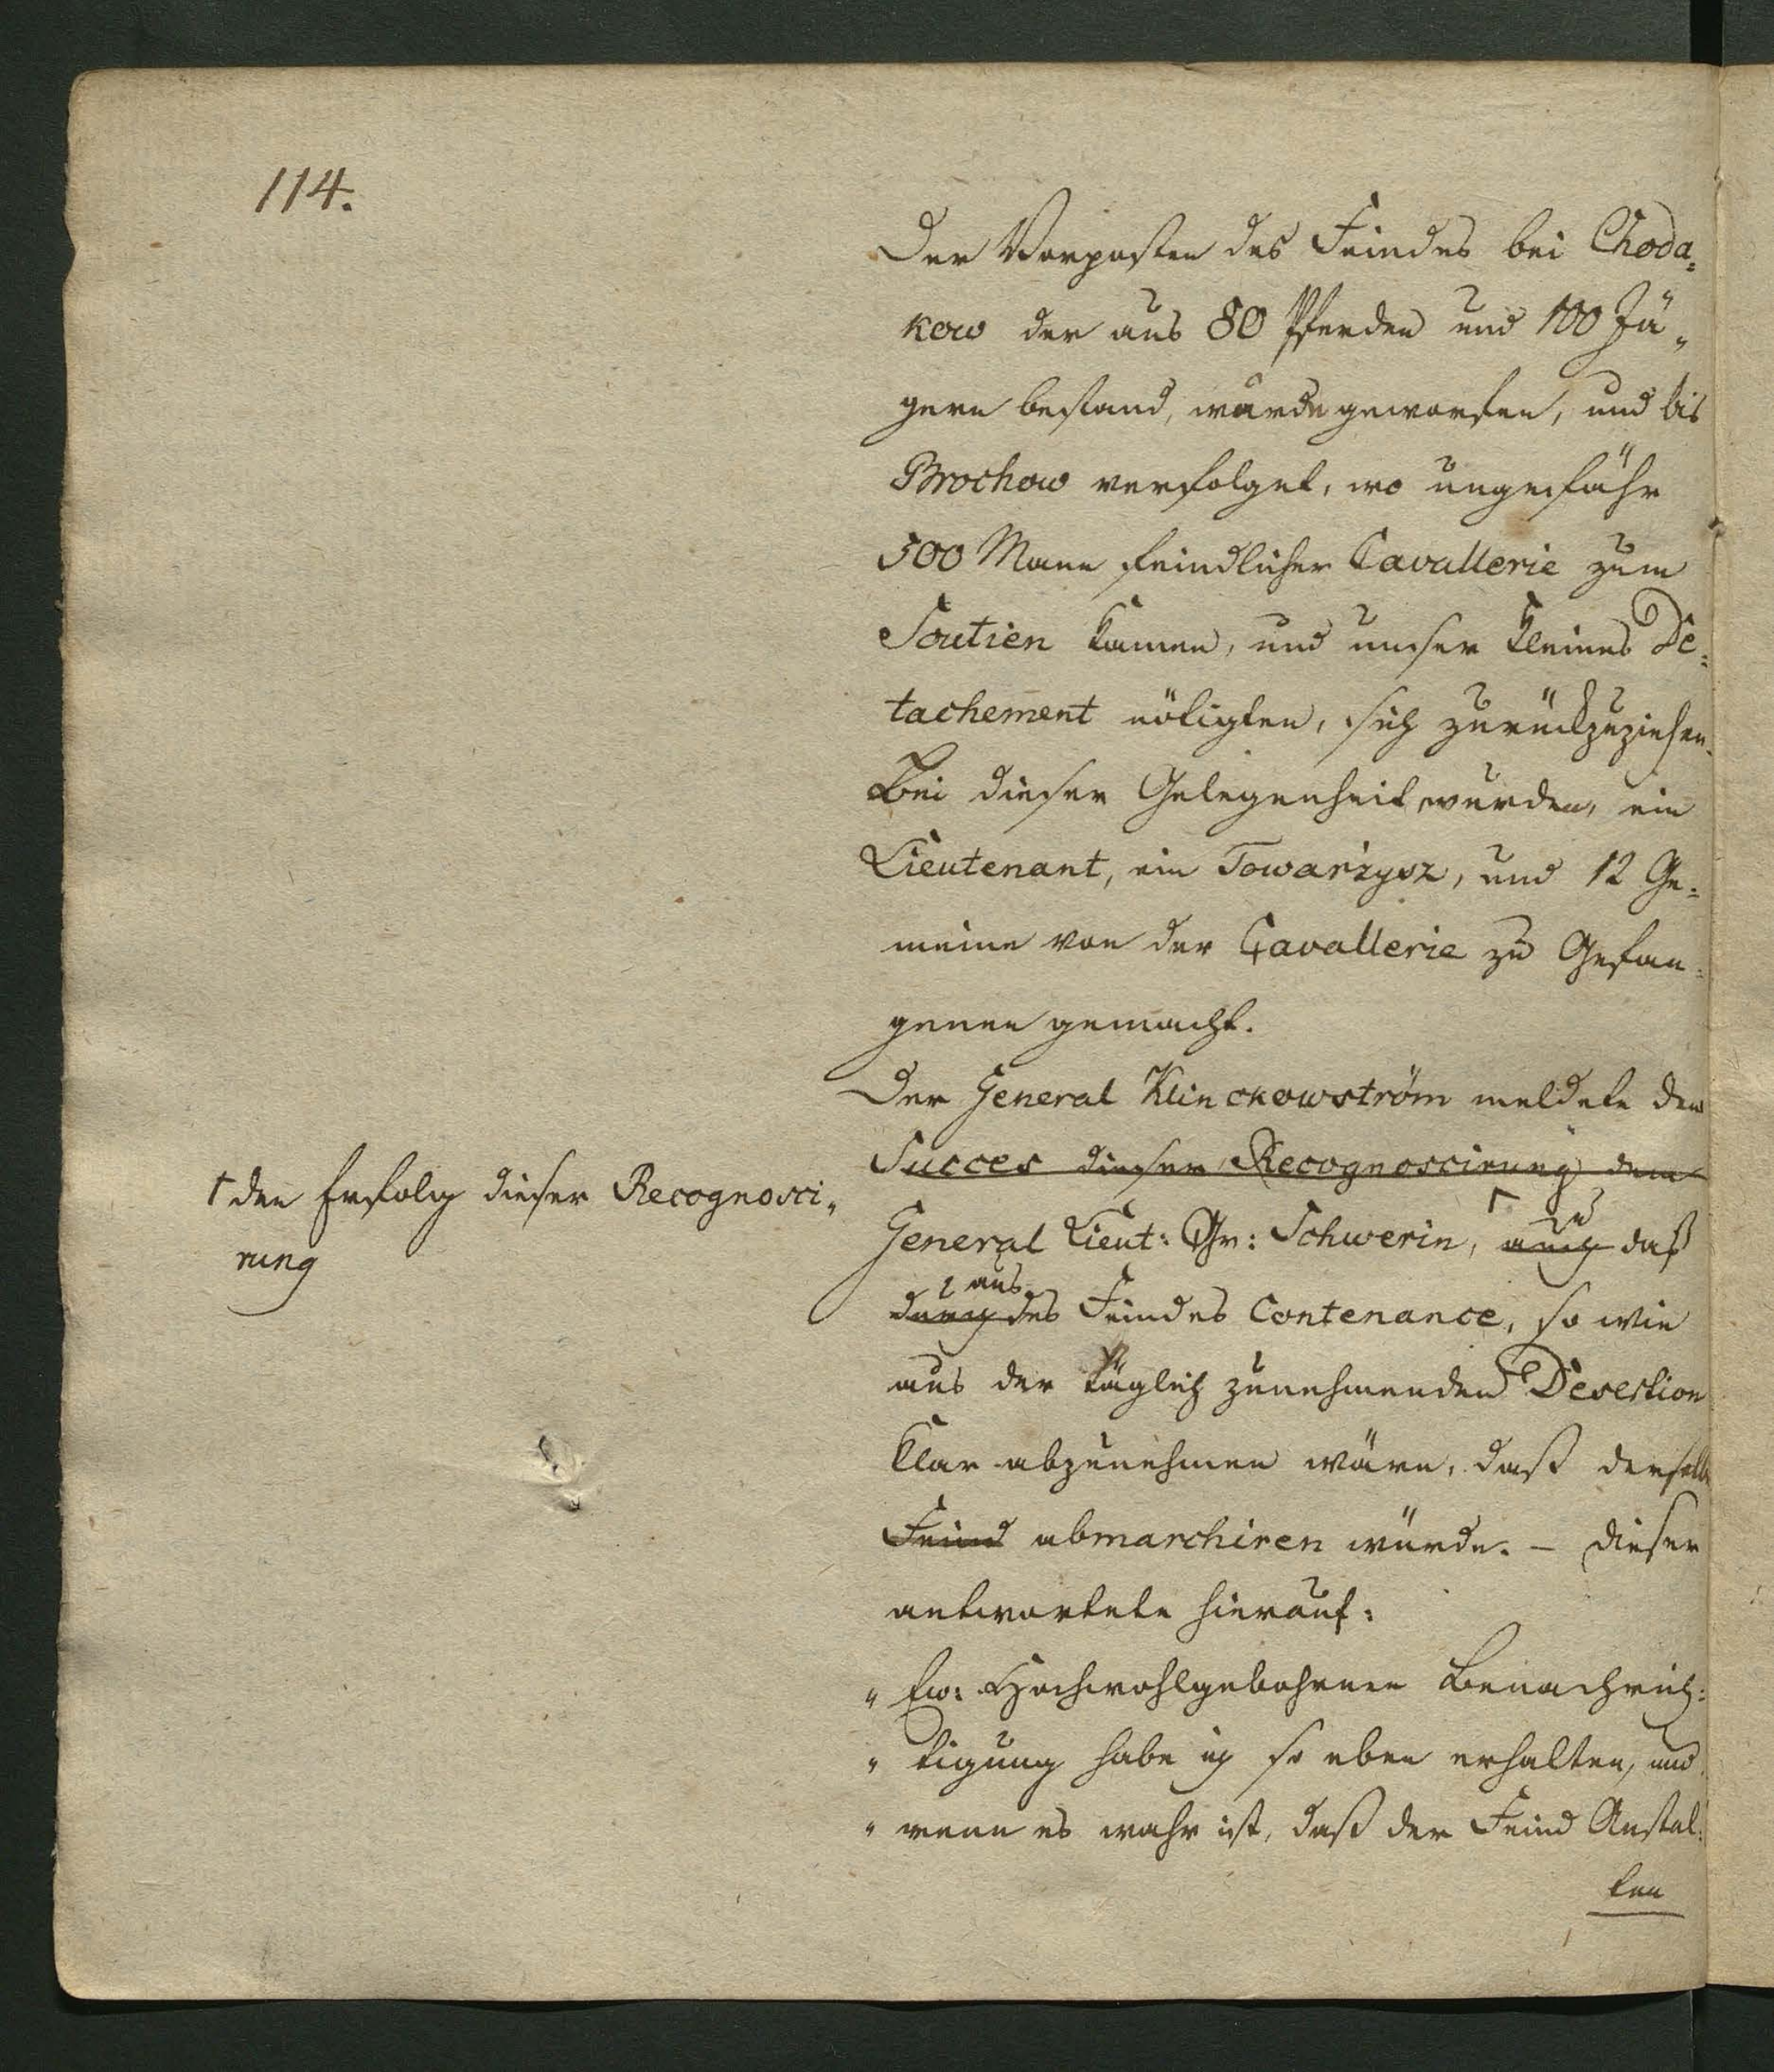 114.
Der Vorposten des Feindes bei Choda=
kow der aus 80 Pferden und 100 Jä„
gern bestand, wurde geworfen, und bis
Brochow verfolget, wo ungefähr
500 Mann feindlicher Cavallerie zum
Soutien kamen, und unser kleines De=
tachement nötigten, sich zurückzuziehen.
Bei dieser Gelegenheit wurden, ein
Lieutenant, ein Towarzysz, und 12 Ge=
meine von der Cavallerie zu Gefan=
genen gemacht.
Der General Klinckowström meldete dem
Succes dieser Recognoscirung dem
† den Erfolg dieser Recognosci„
rung
General Lieut: Gr: Schwerin, † auch daß
durch aus des Feindes Contenance, so wie
aus der täglich zunehmenden Desertion
klar abzunehmen wäre, daß derselbe
Feind abmarchiren würde. – Dieser
antwortete hierauf:
„ Ew: Hochwohlgebohrnen Benachrich=
„ tigung habe ich so eben erhalten, und
„ wenn es wahr ist, daß der Feind Anstal=
ten